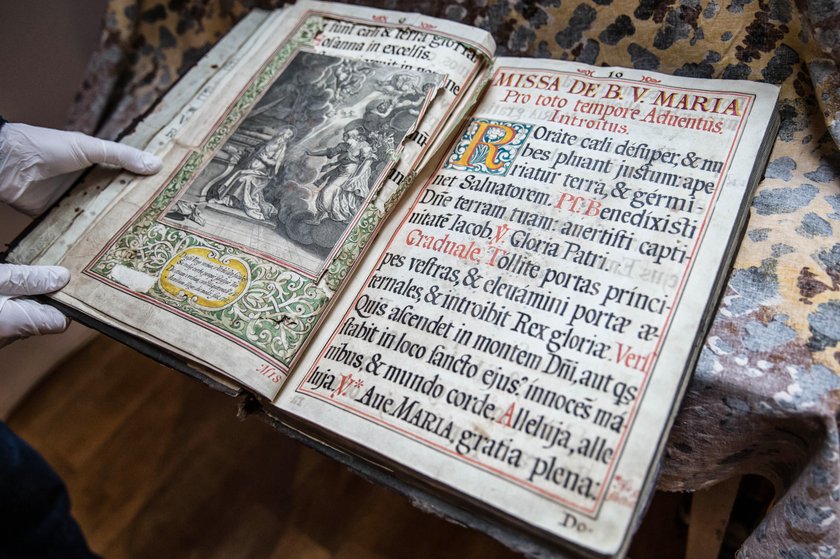 cæli & terra gloria
Hosanna in excelsis.
Mis
10
MISSA DE B. V. MARIA
Pro toto tempore Adventus,
Introitus.
ROráte cæli désuper, & nu
bes pluant justum: ape
riatur terra, & gérmi
net Salvatorem. Ps. Benedixísti
Dñe terram tuam: avertísti capti-
vitatẽ Jacob. ℣. Gloria Patri.
Graduale. Tóllite portas prínci-
pes vestras, & elevámini portæ æ-
ternáles, & introibit Rex gloriæ. Vers.
Quis ascendet in montem Dñi, aut qs
stabit in loco sancto ejus? innocẽs má-
nibus, & mundo corde. Alleluja, alle
luja. ℣. Ave MARIA, gratia plena:
Do-